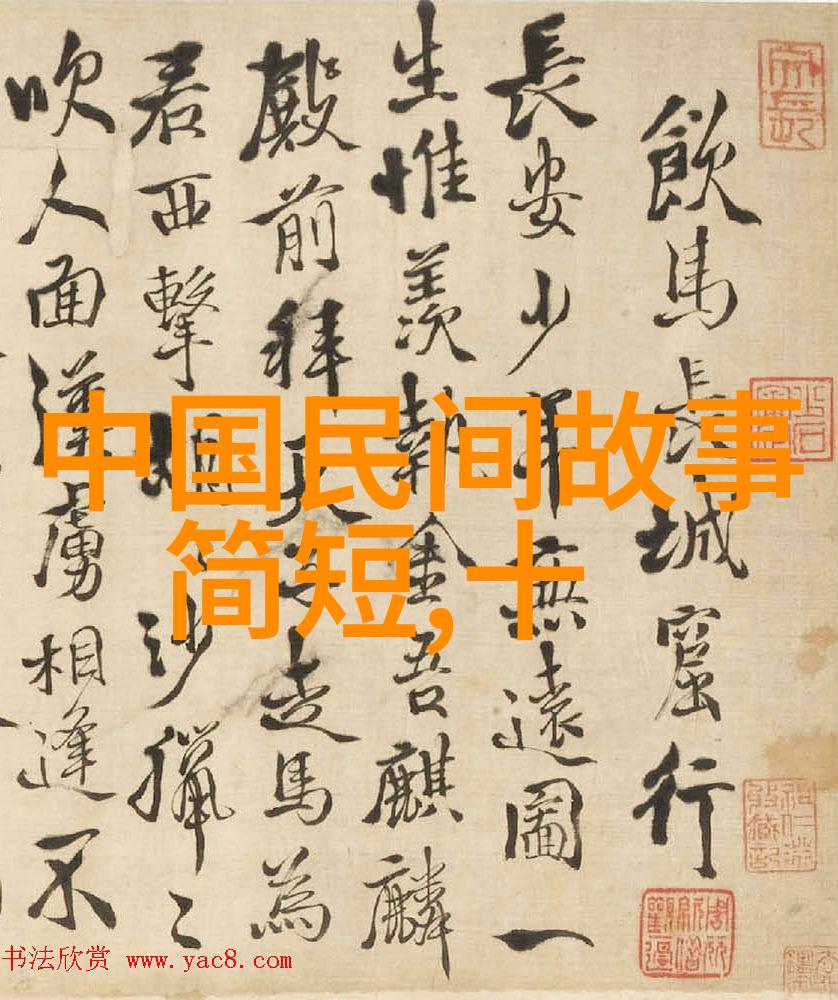 飲馬長城窟行
長安少年無遠圖一
生惟羨執金吾麒麟
殿前拜天子走馬為
君西擊胡〻沙獵〻
吹人面漢虜相逢不
中国民间故事
简短,十
书法欣赏 www.yac8.com